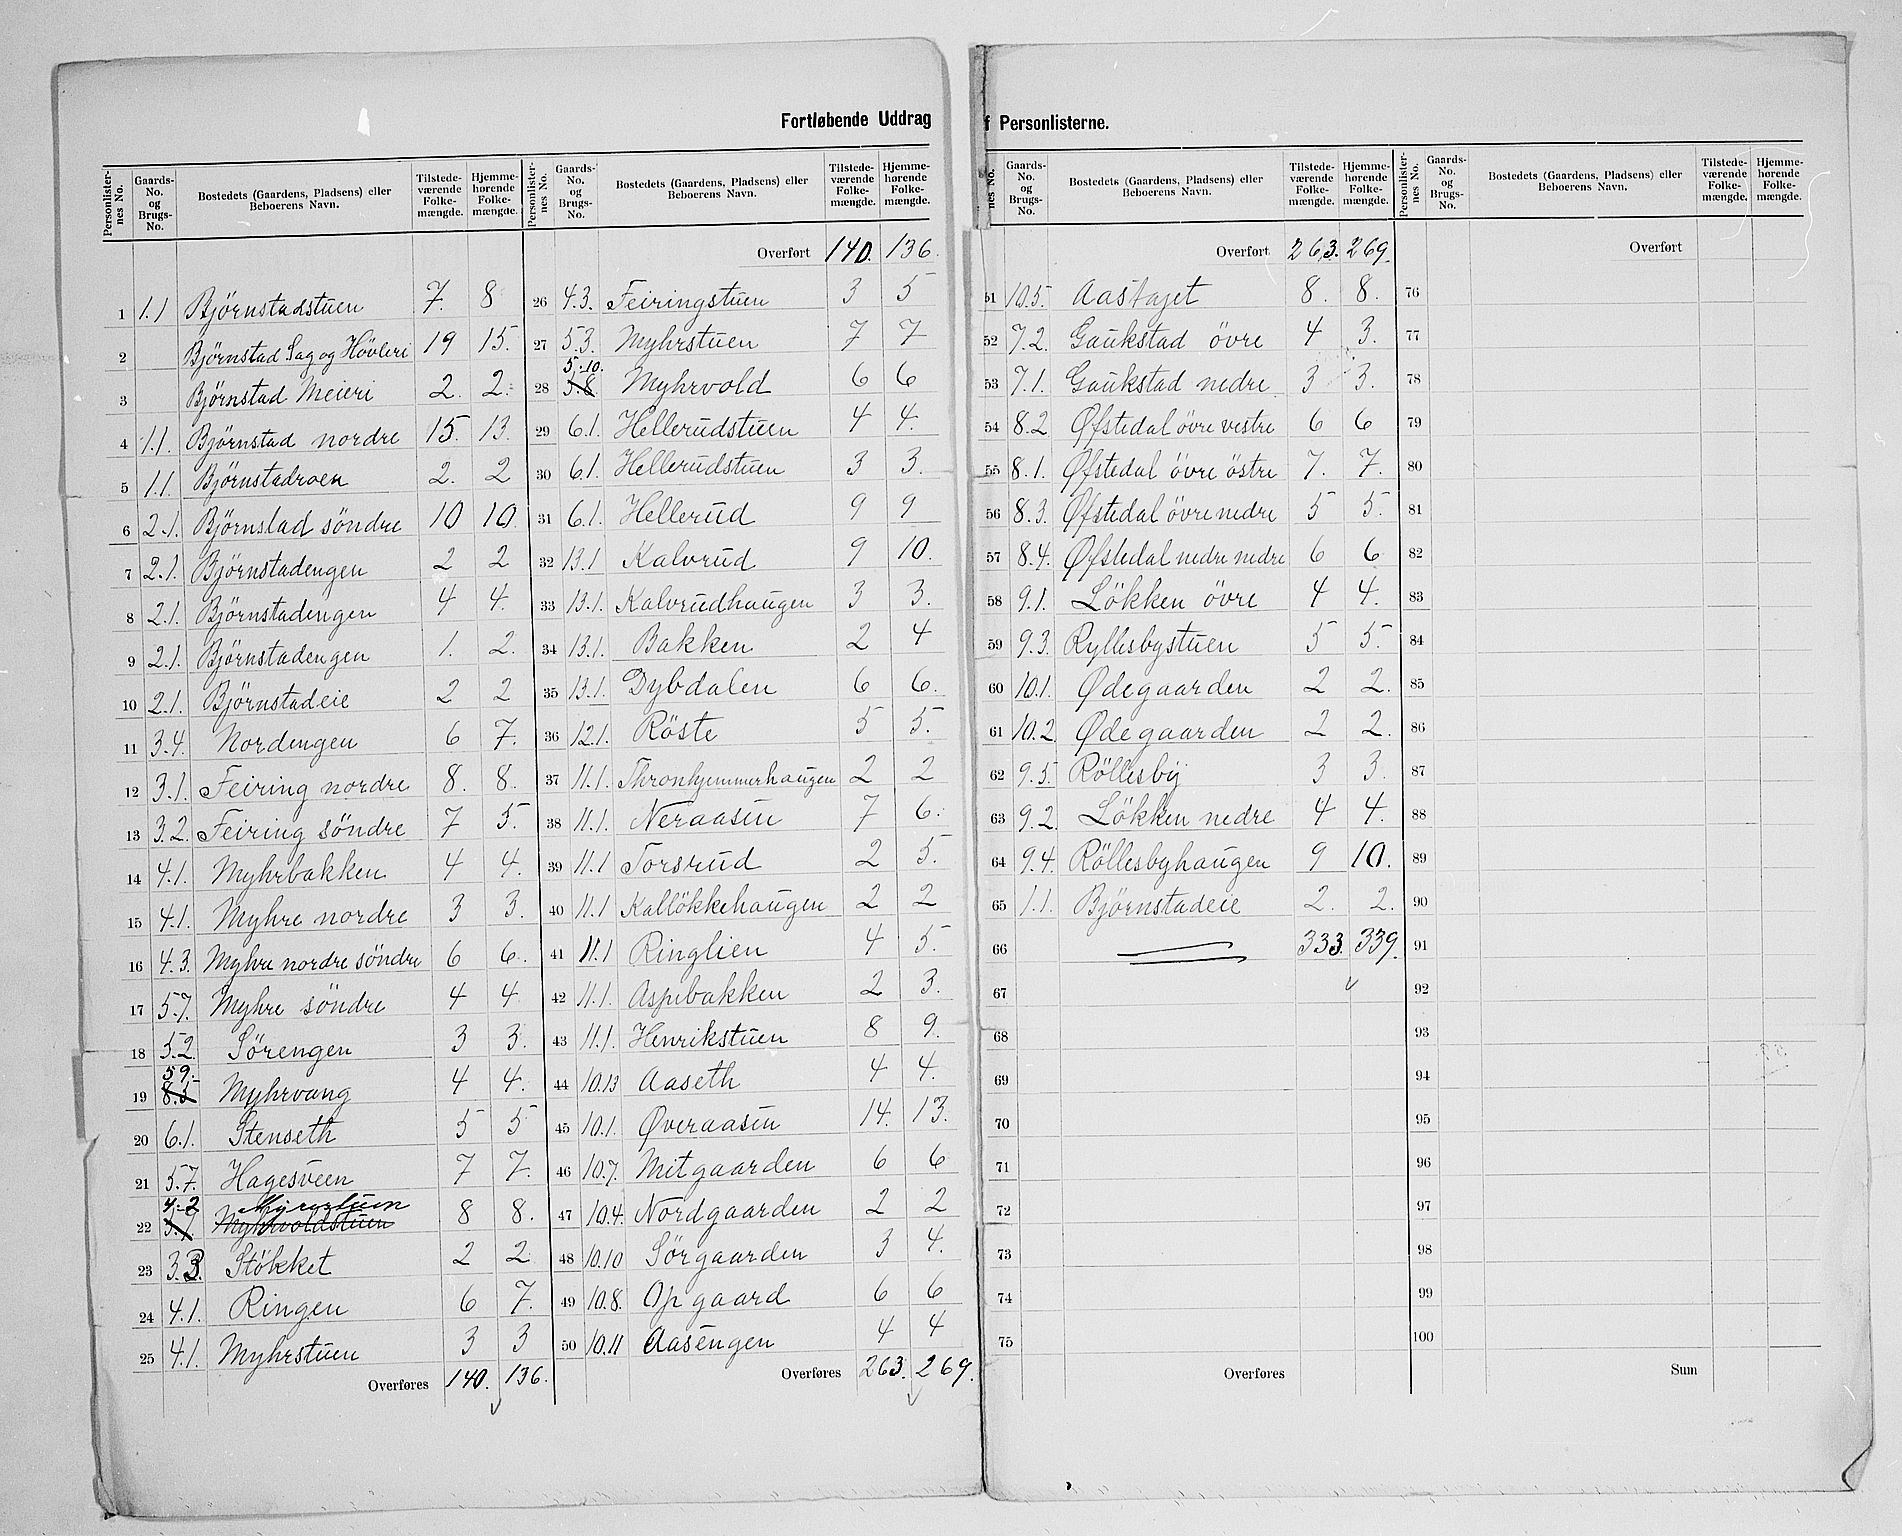 Fortløbende Uddrag
f Personlisterne.
Personlister-nes No. Gaards-No. og Brugs-No. Bostedets (Gaardens, Pladsens) eller Beboerens Navn. Tilstede-værende Folke-mængde. Hjemme-hørende Folke-mængde.
1 1.1 Bjørnstadstuen 7. 8
2 Bjørnstad Sag og Høvleri 19 15.
3 Bjørnstad Meieri 2. 2.
4 1.1. Bjørnstad nordre 15. 13.
5 1.1. Bjørnstadroen 2. 2
6 2.1. Bjørnstad söndre 10 10.
7 2.1. Bjørnstadengen 2 2
8 2.1. Bjørnstadengen 4 4.
9 2.1. Bjørnstadengen 1. 2.
10 2.1. Bjørnstadeie 2 2
11 3.4. Nordengen 6 7.
12 3.1. Feiring nordre 8. 8.
13 3.2. Feiring söndre 7 5.
14 4.1. Myhrbakken 4 4.
15 4.1. Myhre nordre 3 3.
16 4.3. Myhre nordre söndre 6 6.
17 5.7. Myhre söndre 4 4.
18 5.2. Sörengen 3 3.
19 5 9. 8.3 Myhrvang 4 4.
20 6.1. Stenseth 5 5
21 5.7. Hagesveen 7 7.
22 4.2 5.1. Myhrvoldstuen 8 8.
23 3.3. Stökket 2 2
24 4.1. Ringen 6 7.
25 4.1. Myhrstuen 3 3
Overføres 140. 136.
Personlister-nes No. Gaards-No. og Brugs-No. Bostedets (Gaardens, Pladsens) eller Beboerens Navn. Tilstede-værende Folke-mængde. Hjemme-hørende Folke-mængde.
Overført 140. 136.
26 4.3. Feiringstuen 3 5
27 5.3. Myhrstuen 7 7
28 5.10. 5.8 Myhrvold 6 6
29 6.1. Hellerudstuen 4 4.
30 6.1. Hellerudstuen 3 3.
31 6.1. Hellerud 9 9
32 13.1 Kalvrud 9 10.
33 13.1. Kalvrudhaugen 3 3.
34 13.1. Bakken 2 4
35 13.1. Dybdalen 6 6.
36 12.1. Röste 5 5.
37 11.1. Thronhjemmerhaugen 2 2
38 11.1. Neraasen 7 6.
39 11.1 Torsrud 2 5.
40 11.1 Kallökkehaugen 2 2
41 11.1 Ringlien 4 5.
42 11.1. Aspebakken 2 3.
43 11.1. Henrikstuen 8 9.
44 10.13 Aaseth 4 4.
45 10.1. Øveraasen 14. 13.
46 10.7. Mitgaarden 6 6
47 10.4. Nordgaarden 2 2
48 10.10 Sörgaarden 3 4.
49 10.8. Opgaard 6 6
50 10.11 Aasengen 4 4
Overføres 263. 269.
nes No. Gaards-No. og Brugs-No. Bostedets (Gaardens, Pladsens) eller Beboerens Navn. Tilstede-værende Folke-mængde. Hjemme-hørende Folke-mængde.
Overført 263. 269.
51 10.5. Aastajet 8. 8.
52 7.2. Gaukstad övre 4 3.
53 7.1. Gaukstad nedre 3 3.
54 8.2 Øfstedal övre vestre 6 6
55 8.1. Øfstedal övre östre 7. 7.
56 8.3. Øfstedal övre nedre 5 5.
57 8.4. Øfstedal nedre nedre 6 6
58 9.1. Lökken övre 4 4.
59 9.3. Ryllesbystuen 5 5.
60 10.1. Ødegaarden 2 2.
61 10.2. Ødegaarden 2 2.
62 9.5. Röllesby 3 3.
63 9.2. Lökken nedre 4 4.
64 9.4. Röllesbyhaugen 9 10.
65 1.1. Bjørnstadeie 2. 2.
66 333. 339.
67
68
69
70
71
72
73
74
75
Overføres
Personlister-nes No. Gaards-No. og Brugs-No. Bostedets (Gaardens, Pladsens) eller Beboerens Navn. Tilstede-værende Folke-mængde. Hjemme-hørende Folke-mængde.
Overført
76
77
78
79
80
81
82
83
84
85
86
87
88
89
90
91
92
93
94
95
96
97
98
99
100
Sum